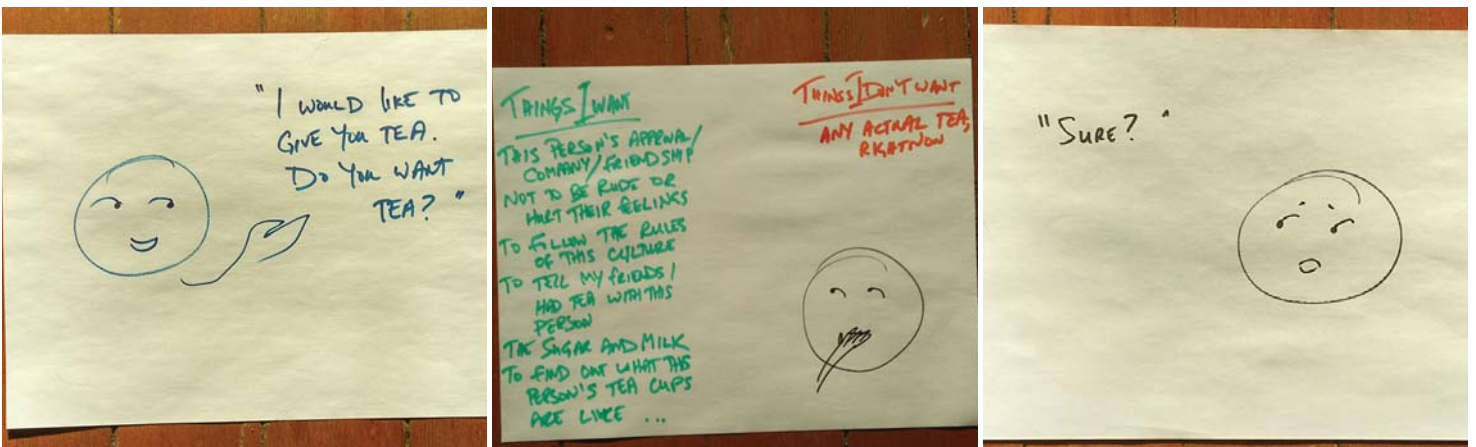 "I WOULD LIKE TO
GIVE YOU TEA.
DO YOU WANT
TEA?"
THINGS I WANT
THIS PERSON'S APPROVAL/
COMPANY/FRIENDSHIP
NOT TO BE RUDE OR
HURT THEIR FEELINGS
TO FOLLOW THE RULES
OF THIS CULTURE
TO TELL MY FRIENDS I
HAD TEA WITH THIS
PERSON
THE SUGAR AND MILK
TO FIND OUT WHAT THIS
PERSON'S TEA CUPS
ARE LIKE ...
THINGS I DON'T WANT
ANY ACTUAL TEA,
RIGHT NOW
"SURE?"